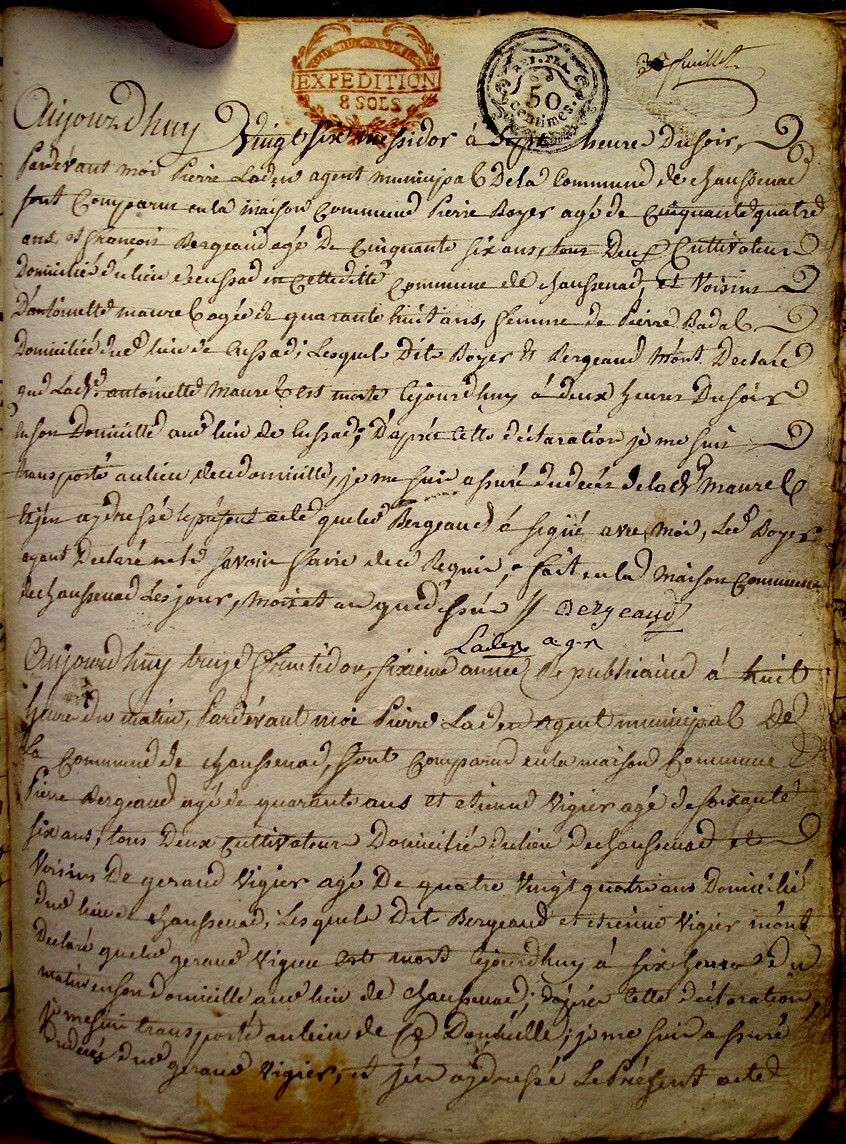 EXPEDITION
8 SOLS
REP. FRA.
50
centimes.
3e feuillet
Aujourdhuy Vingt six messidor à sept heure du soir,
Pardevant moi Pierre Laden agent municipal de la Commune de chaussenac
sont Comparu en la maison Commune Pierre Boyer agé de Cinquante quatre
ans, et françois Bergeaud agé de Cinquante six ans, tous deux Cultivateur
Domicilié du lieu decussac en cette dite Commune de chaussenac, et Voisins
D'antoinette maurel agée de quarante huit ans, femme de Pierre Badal
Domiciliée aud lieu de Cussac; Lesquels Dits Boyer & Bergeaud M'ont Declaré
que Lade antoinette Maurel est morte cejourdhuy à deux heures du soir
en son Domicille aud lieu de Cussac; D'après cette déclaration je me suis
transporté au lieu de ce domicille, je me suis assuré du decés de lade maurel
et j'en ay dressé le présent acte que led Bergeaud à signé avec moi, Led Boyer
ayant Declaré ne le savoir faire de ce Requis, fait en la Maison Commune
de chaussenac Les jour, mois et an que dessus // Bergeaud
Laden agn
Aujourdhuy treize fructidor, sixieme année Republicaine à huit
heure du matin, Pardevant moi Pierre Laden agent municipal de
la Commune de chaussenac, sont Comparu en la maison Commune
Pierre Bergeaud agé de quarante ans et etienne Vigier agé de soixante
six ans, tous deux Cultivateur Domicilié du lieu de chaussenac et
Voisins De geraud Vigier agé De quatre Vingt quatre ans Domicilié
dud lieu de chaussenac, Lesquels Dits Bergeaud et etienne Vigier m'ont
Declaré que led geraud Vigier est mort cejourdhuy à six heures du
matin en son domicille aud lieu de chaussenac; d'après cette déclaration,
je me suis transporté au lieu de ce Domicille; je me suis assuré
du decés dud geraud Vigier, et j'en ay dressé Le Présent acte